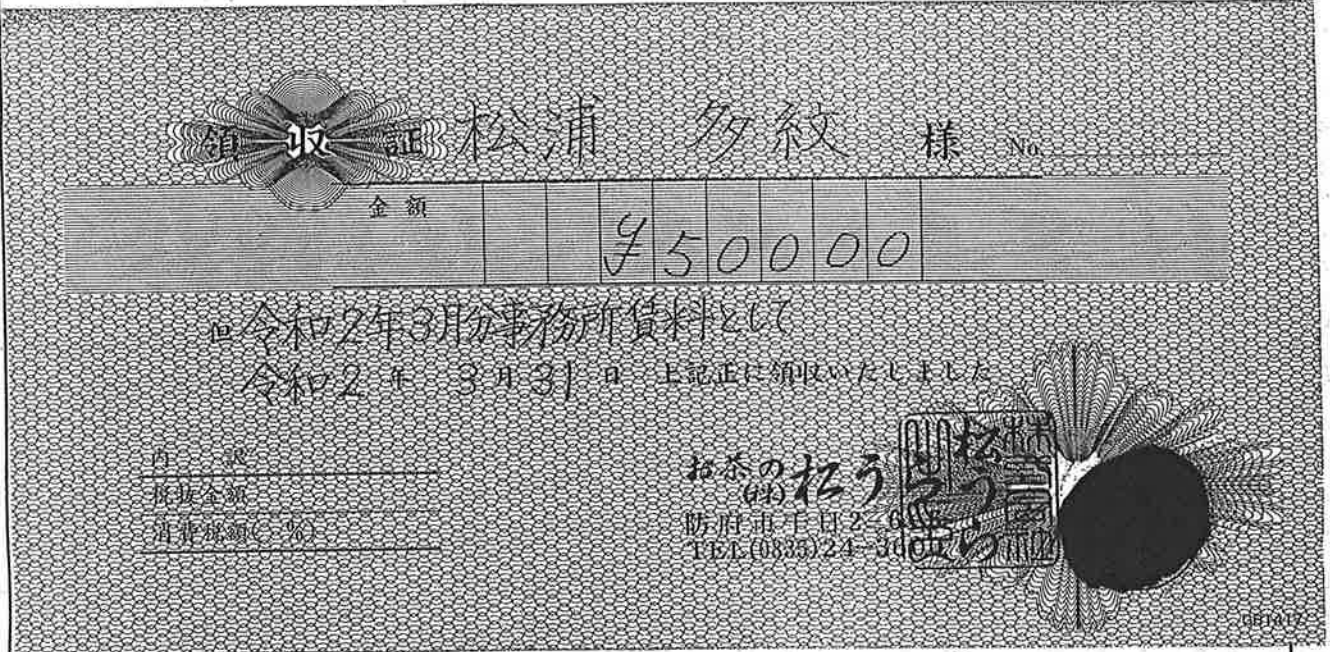 領収証 松浦 多紋 様 No.
金額
¥50000
但 令和2年3月分事務所賃料として
令和2年 3月31日 上記正に領収いたしました
内訳
税抜金額
消費税額( %)
お茶の
(株)松うら
防府市
TEL(0835)24-